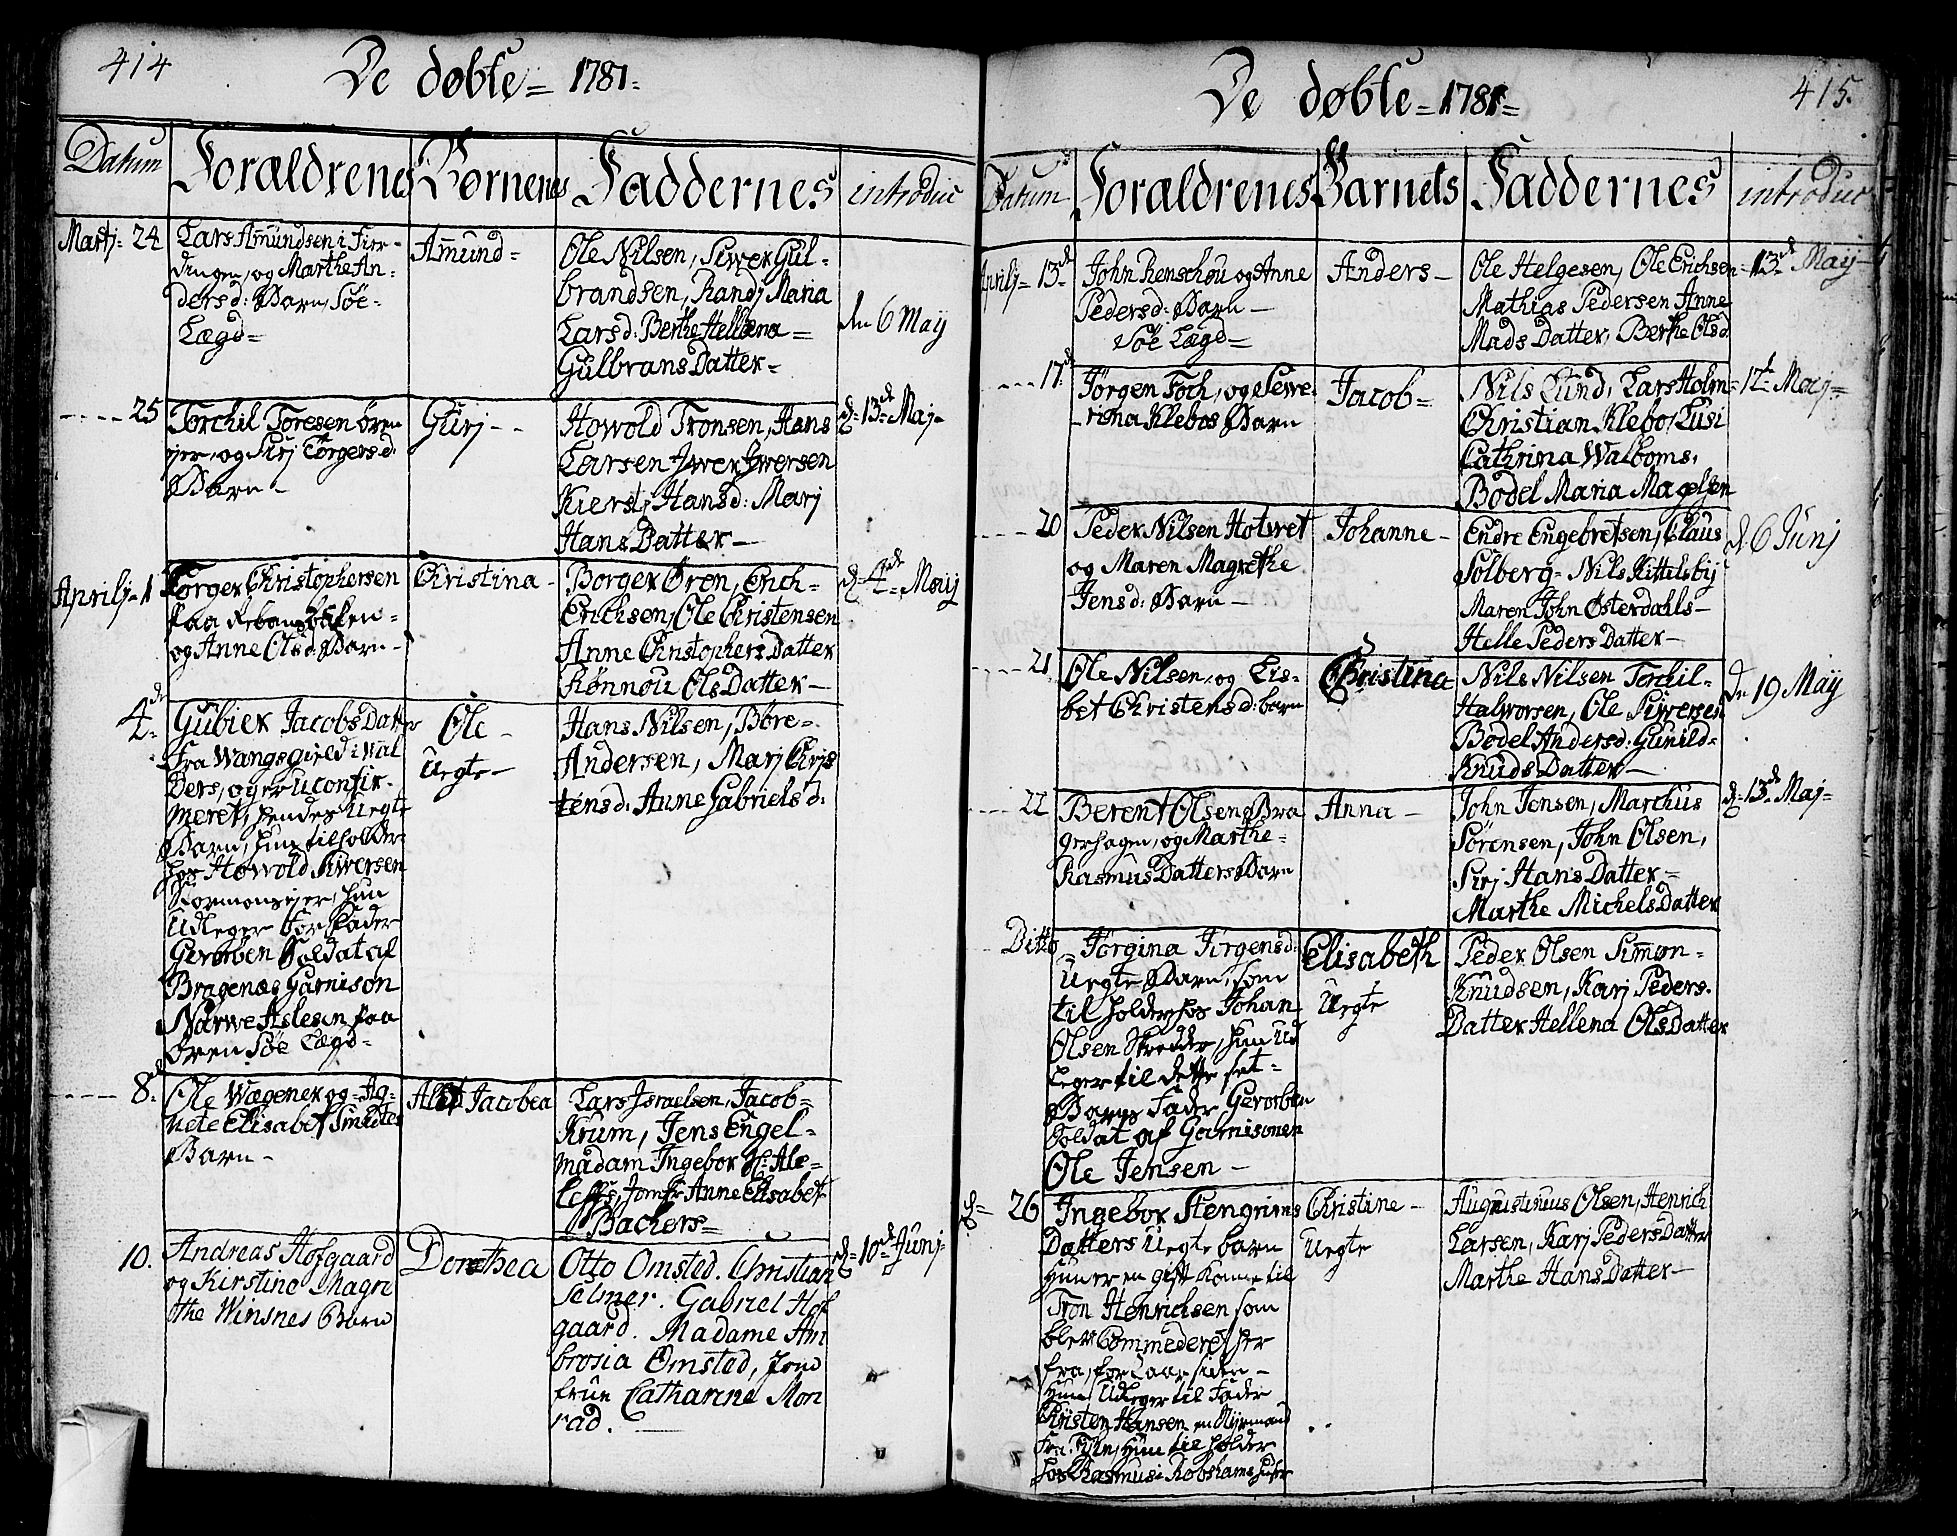 414
De døbte = 1781.
Datum Forældrenes Børnenes Faddernes introduc
Martj = 24
Lars Amundsen i Fier-
dingen, og Marthe An-
dersd: Barn, Søe-
Lægd=
Amund=
Ole Nilsen, Siwer Gul-
brandsen, Randj Maria
Larsd: Berthe Hellena=
Gulbrans Datter-
den 6 Maij
25
Torchil Toresen ören
ijer, og Sirj Törgersd:
Barn-
Gurj--
Howold Tronsen, Hans
Larsen Jwer Jwersen
Kierstj Hansd: Marj
Hans Datter-
d: 13de Maj-
Aprilj = 1
Torger Christophersen
paa
og Anne Olsd: Barn-
Christina-
Borger Ören, Erich-
Erichsen, Ole Christensen
Anne Christophers Datter
Rönnou Ols Datter-
d: 4de Maij
4de
Gubiør Jacobs Datter
fra Wangs gield i Wal
Ders, og er uconfir-
meret, hendes Uegte
Barn, hun tilholder
hos Howold Siwersen
hun
Udlegger for Fader
Geworben Soldat af
Bragenæs Garnison
Narwe Aslesen paa
ören Söe Lægd=
Ole-
Uegte-
Hans Nilsen, Børe-
Andersen, Marj Chris
tensd: Anne Gabrielsd:
8de
Ole Wægener og Ag-
nete Elisabet Smidtes
Barn-
Alet Jacobea
Lars Jsraelsen, Jacob-
Krum, Jens Engel-
Madam Ingebor
Jomfr Anne Elisabet
Bachers=
10.
Andreas Hofgaard
og Kirstine Magre
the Winsnes Barn
Dorothea
Otto Omsted. Christian
Selmer. Gabriel Hof
gaard. Madame Am
brosia Omsted, Jom
frue Catharine Mon
rad.
d: 10de Junj-
415.
De døbte = 1781=
Datum Forældrenes Barnets Faddernes introduc
Aprilj = 13de
John Renschou og Anne
Pedersd: Barn-
Söe Lægd=
Anders-
Ole Helgesen, Ole Erichsen
Mathias Pedersen Anne
Mads Datter, Berthe Olsd:
13de Maij-
17de
Jørgen Foch, og Sewe-
rina Klebos Barn
Jacob=
Nils Lund, Lars Holm=
Christian Klebo, Lusi
Cathrina Walboms,
Bodel Maria Magelsen
17de Maij=
20
Peder Nilsen Hotwet
og Maren Magrethe
Jensd: Barn-
Johanne-
Endre Engebretsen, Claus
Solberg- Nils Kittelsbij
Maren John Österdahls-
Helle Peders Datter-
d: 6 Junj
21
Ole Nilsen, og Lis-
bet Christensd: barn
Christina
Nils Nilsen Torchil-
Halworsen, Ole Siwersen
Bodel Andersd: Gunild-
Knuds Datter-
den 19 Maij
22
Berent Olsen Bra
gerhagen, og Marthe-
Rasmus Datters Barn
Anna-
John Jensen, Marchus
Sörensen, John Olsen,
Sirj Hans Datter-
Marthe Michels Datter
d: 13de Maj=
Ditto
Jörgina Jörgensd:
Uegte Barn, som
til holder hos Johan
Olsen Skredder, hun ud
leger til dette sit-
Barns Fader Geworben
Soldat af Garnisonen
Ole Jensen-
Elisabeth
Uegte
Peder Olsen Simon-
Knudsen, Karj Peders.
Datter Hellena Olsdatter
d= 26
Ingebor Stengrims
Datters Uegte barn
hun er en gift Konne til
Tron Henrichsen som
blev Commederet her
fra, for 2 aar siden-
hun Udleger til Fader
Christen Hansen en
fra, hun til holder
hos Rasmus
Christine-
Uegte
Augustinus Olsen, Henrich
Larsen, Karj Peders Datter
Marthe Hans Datter-